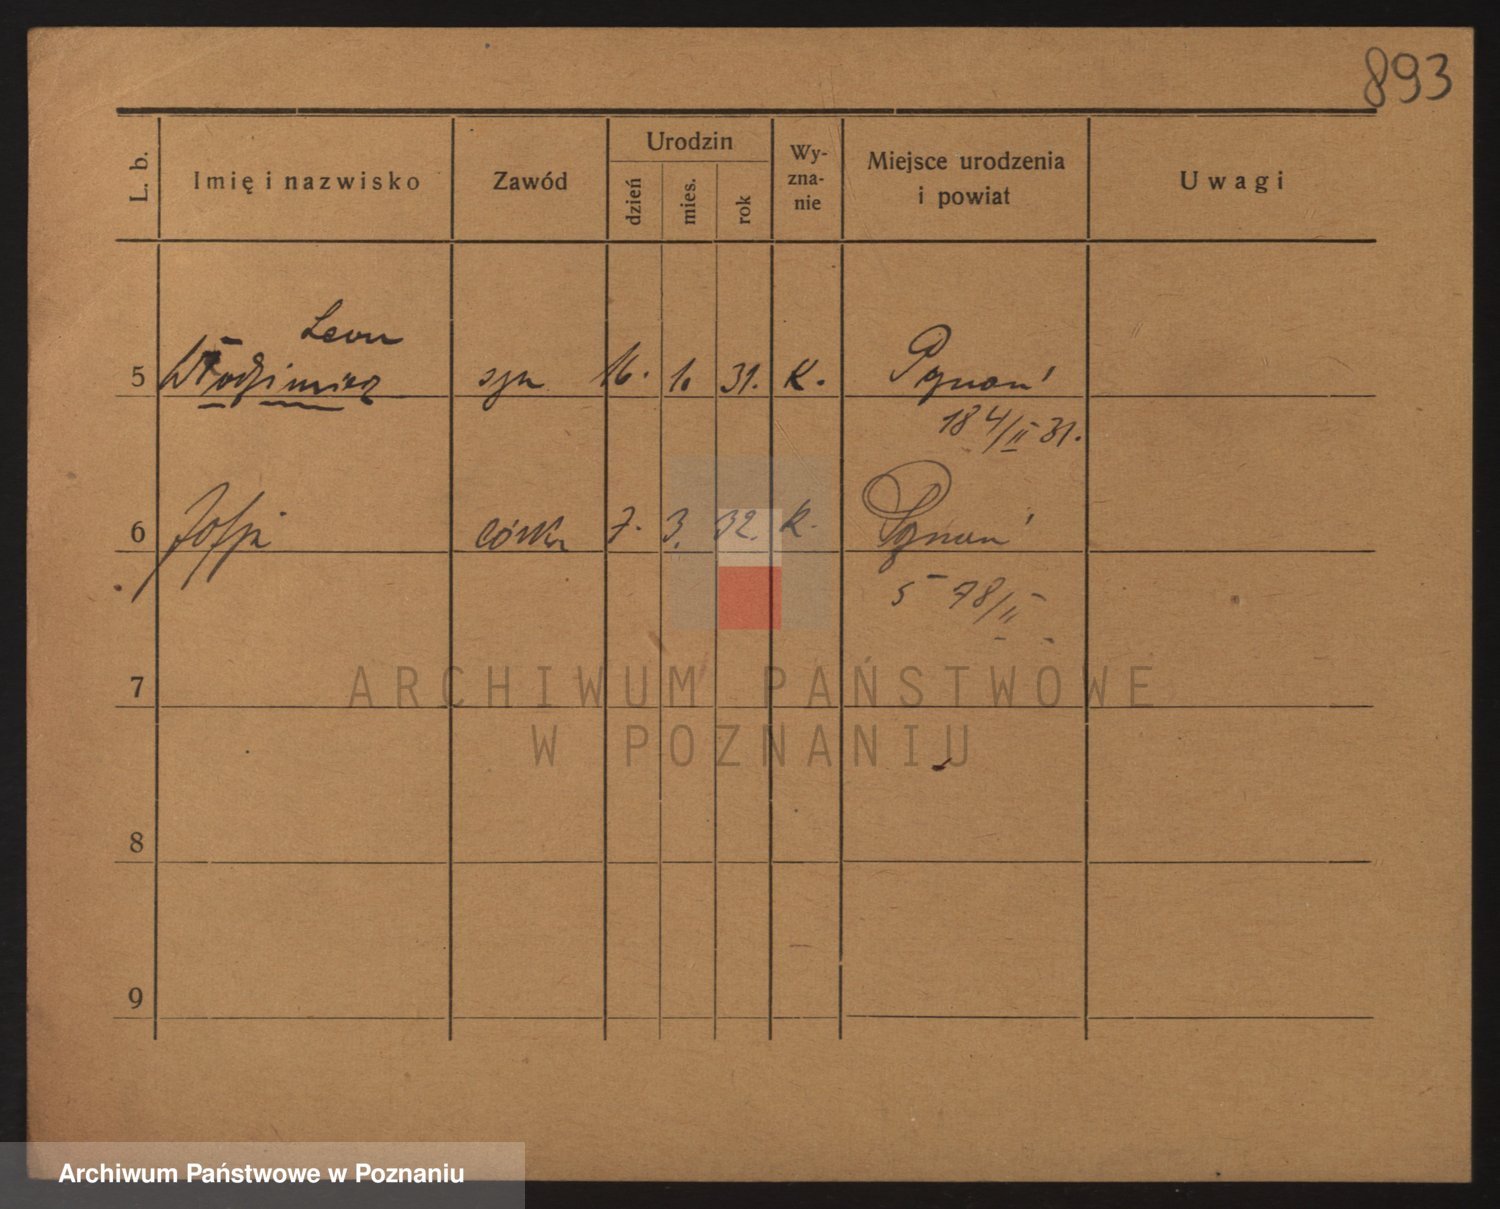 893
L. b. Imię i nazwisko Zawód Urodzin dzień mies. rok Wy-zna-nie Miejsce urodzenia i powiat Uwagi
Leon
5 Włodzimierz syn 16. 1. 31. K. Poznań
184/II 31.
6 Zofja córka 7. 3. 32. K. Poznań
578/II
7
ARCHIWUM PAŃSTWOWE
W POZNANIU
8
9
Archiwum Państwowe w Poznaniu